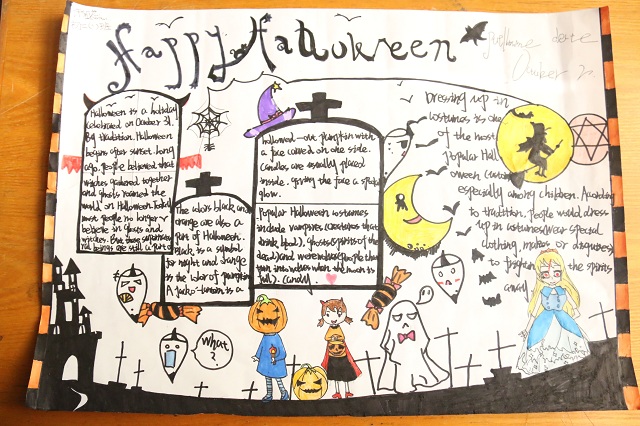 Happy Halloween
Halloween is a holiday
celebrated on October 31.
By tradition. Halloween
begins after sunset. long
ago. people believed that
witches gathered together
and ghosts roamed the
world on Halloween. today
most people no longer
believe in ghosts and
witches. But these supernatu
ral beings are still a part of
The colors black and
orange are also a
part of Halloween.
Black is a symbol
for night and orange
is the color of pumpkins
A jack-o-lantern is a
hollowed-out pumpkin with
a face carved on one side.
Candles are usually placed
inside. giving the face a spooky
glow.
Popular Halloween costumes
include vampires (creatures that
drink blood). Ghosts (spirits of the
dead) and werewolves (people that
turn into wolves when the moon is
full). Candy
Dressing up in
costumes is one
of the most
popular Hall
oween customs
especially among children. According
to tradition. people would dress
up in costumes (wear special
clothing, masks or disguises)
to frighten the spirits
away
What
?